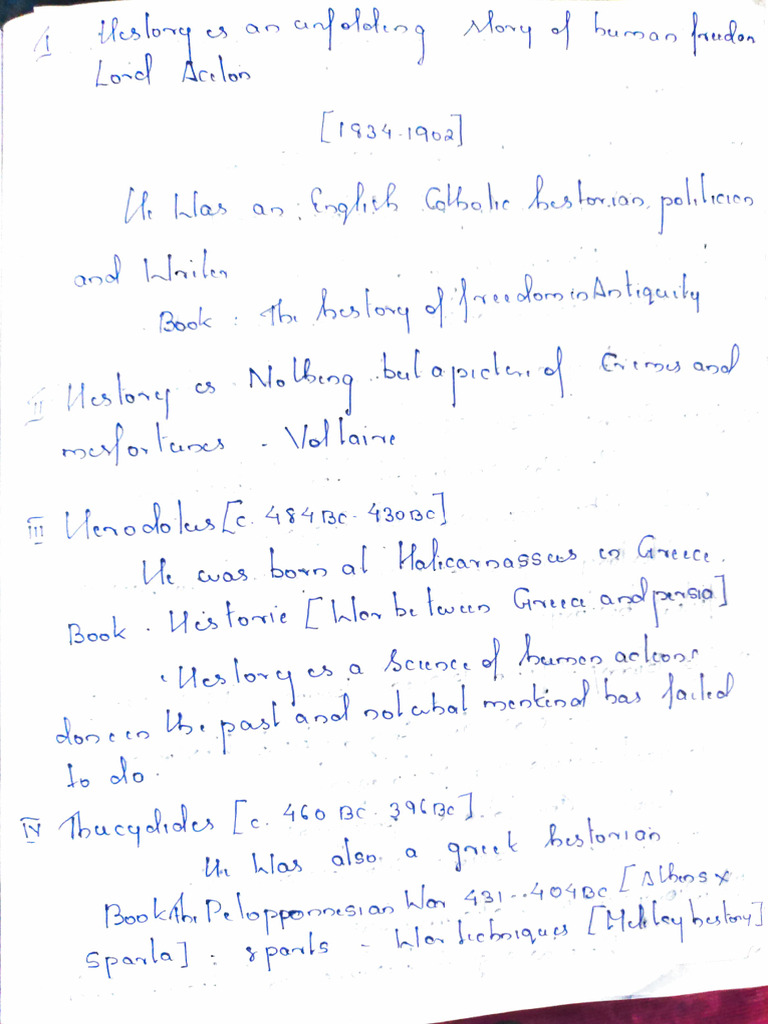 I History is an unfolding story of human freedom
Lord Acton
[1834-1902]
He was an English Catholic historian, politician
and Writer
Book : The history of freedom in Antiquity
II History is Nothing but a picture of Crimes and
misfortunes - Voltaire
III Herodotus [c. 484 BC - 430 BC]
He was born at Halicarnassus in Greece.
Book . Historie [War between Greece and persia]
"History is a Science of human actions
done in the past and not what mankind has failed
to do.
IV Thucydides [c. 460 BC - 396 BC]
He was also a greek historian
Book The Peloppnnesian War 431 - 404 BC [Athens x
Sparta] : 8 parts - War techniques [history]